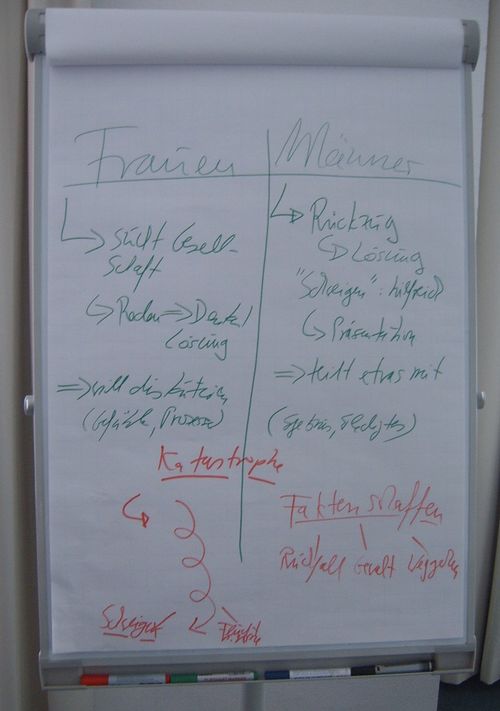 Frauen
Männer
sucht Gesell-
schaft
Reden => Denken/
Lösung
=> will diskutieren
(Gefühle, Prozesse)
Rückzug
Lösung
"Schweigen": hilfreich
Präsentation
=> teilt etwas mit
(Ergebnis, Erledigtes)
Katastrophe
Schweigen
Fakten schaffen
Rückfall Gewalt Weggehen